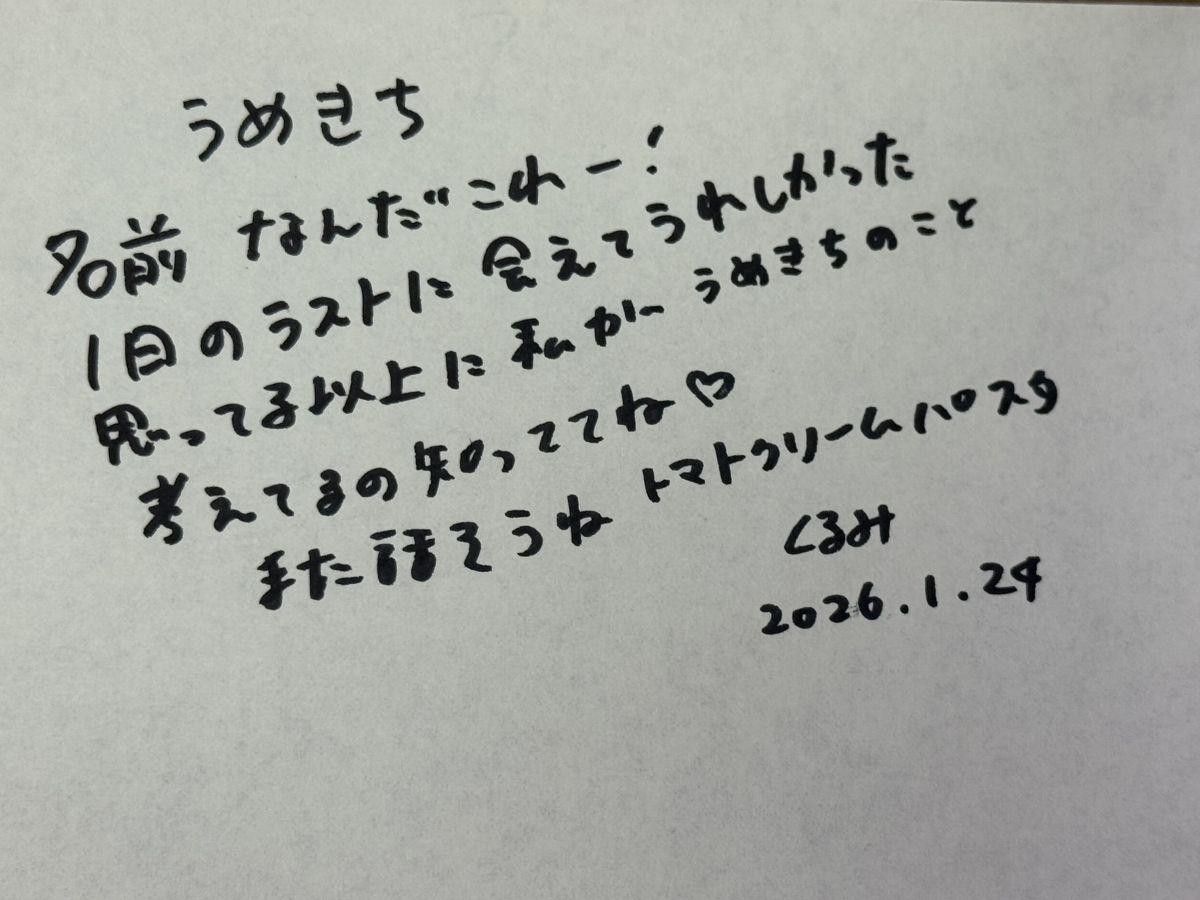 うめきち
名前 なんだこれー!
1日のラストに会えてうれしかった
思ってる以上に私がうめきちのこと
考えてるの知っててね♡
また話そうね トマトクリームパスタ
くるみ
2026.1.24